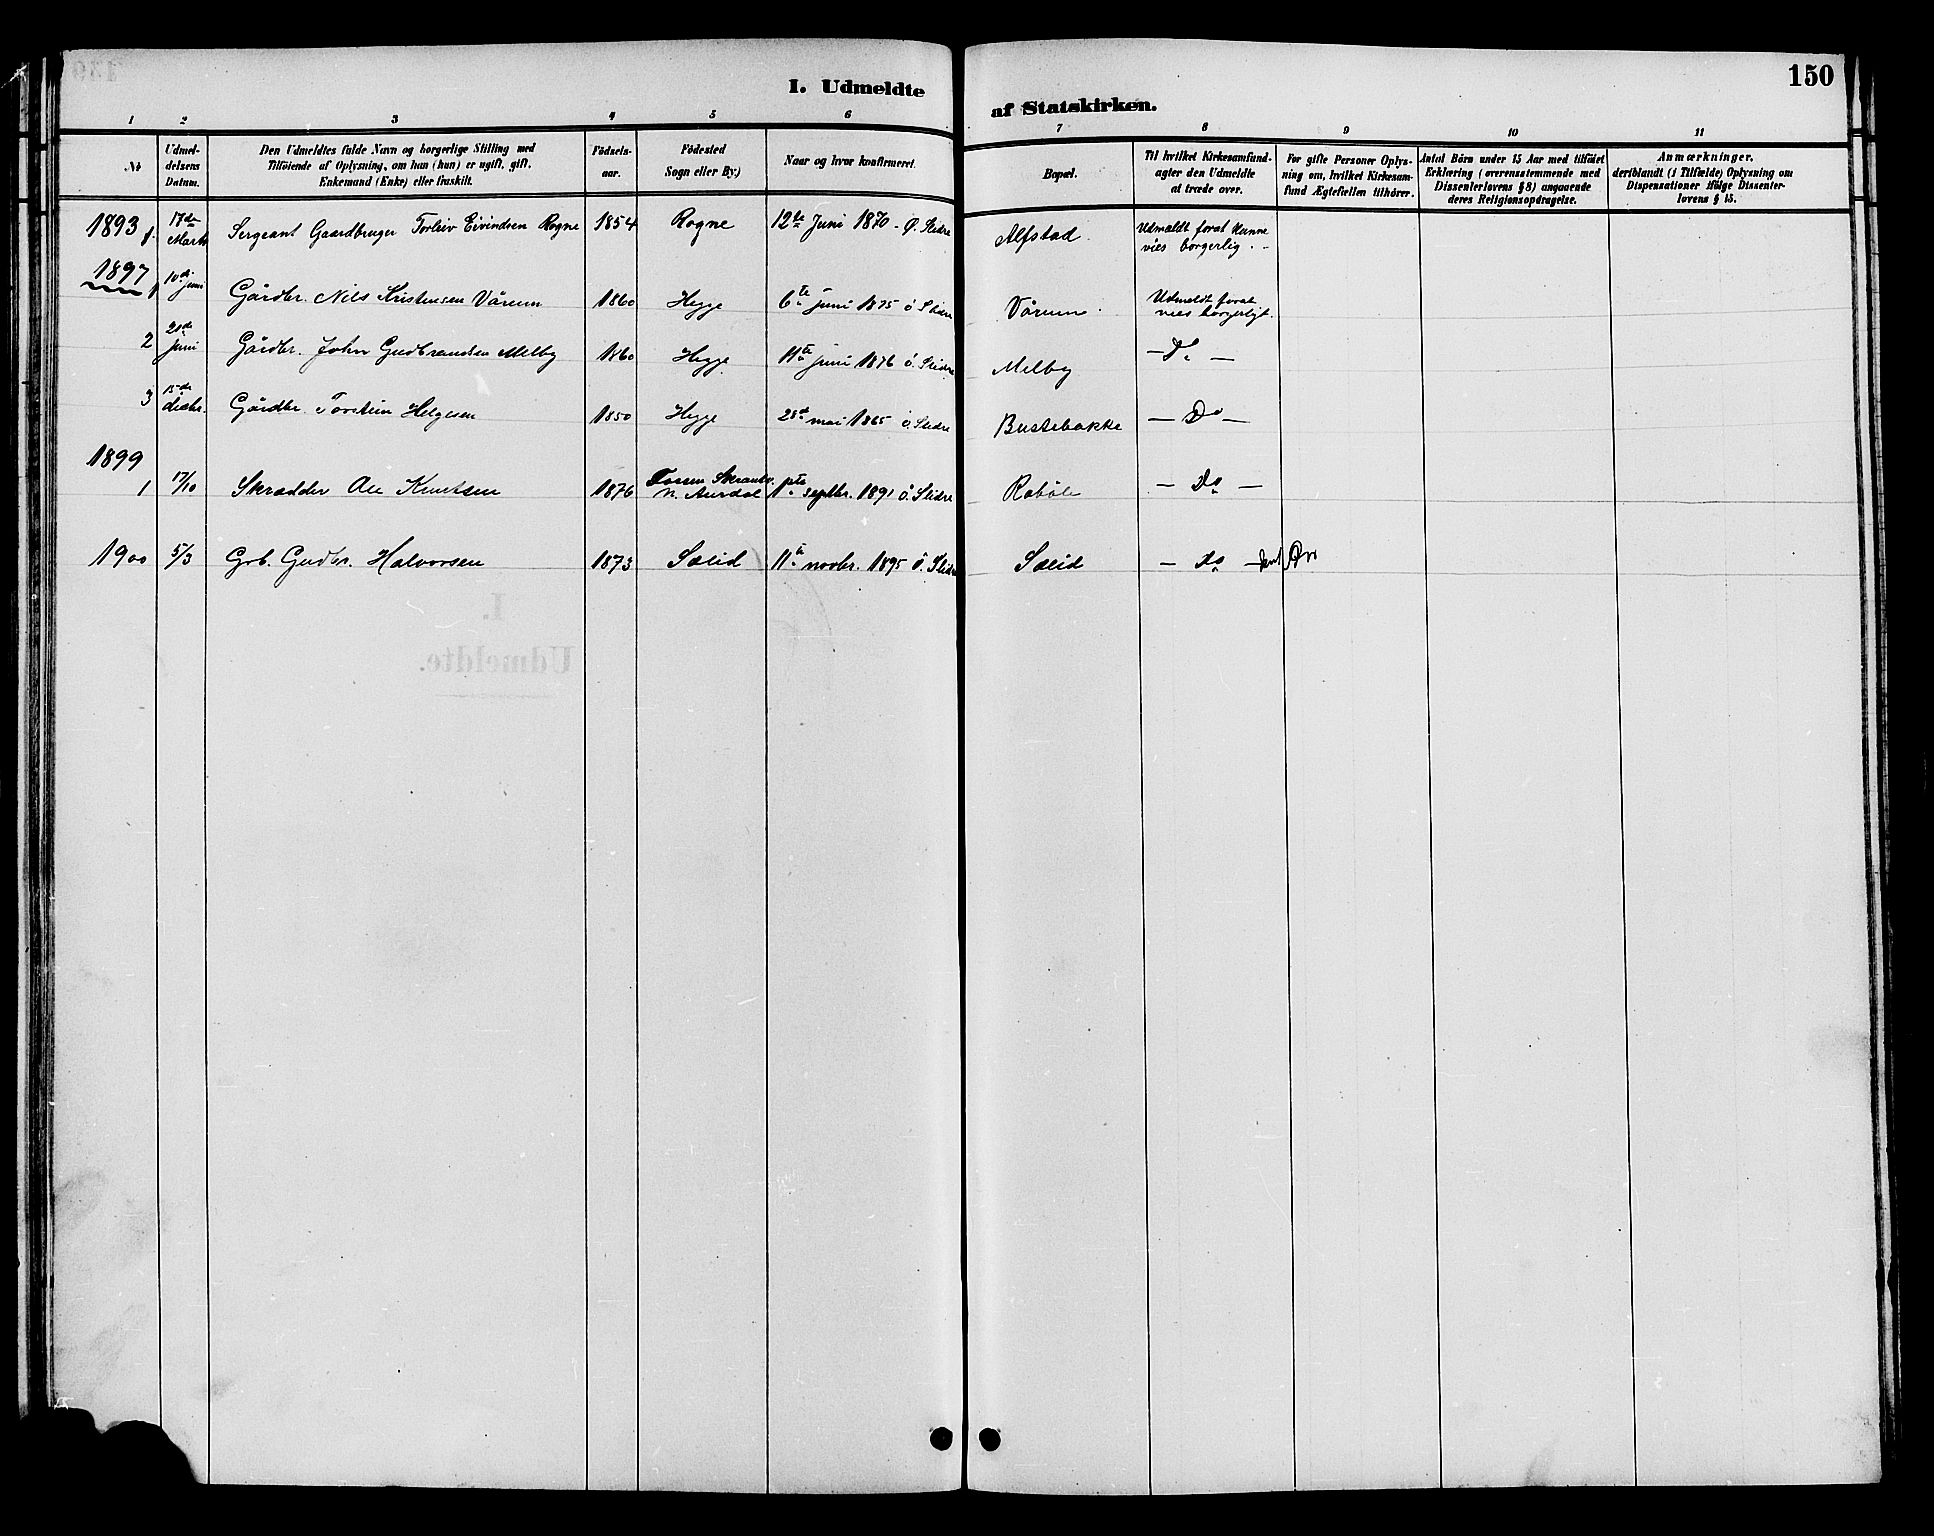 150
I. Udmeldte
af Statskirken.
1 2 3 4 5 6 7 8 9 10 11
No
Udmel-
delsens
Datum.
Den Udmeldtes fulde Navn og borgerlige Stilling med
Tilføiende af Oplysning, om han (hun) er ugift, gift,
Enkemand (Enke) eller fraskilt.
Fødsels-
aar.
Fødested
Sogn eller By.)
Naar og hvor konfirmeret.
Bopæl.
Til hvilket Kirkesamfund-
agter den Udmeldte
at træde over.
For gifte Personer Oplys-
ning om, hvilket Kirkesam-
fund Ægtefællen tilhører.
Antal Børn under 15 Aar med tilføiet
Erklæring (overensstemmende med
Dissenterlovens § 8) angaaende
deres Religionsopdragelse.
Anmærkninger,
deriblandt (i Tilfælde) Oplysning om
Dispensationer ifølge Dissenter-
lovens § 15.
1893 1. 17de Marts Sergeant Gaardbruger Torleiv Eivindsen Rogne 1854 Rogne 12te Juni 1870 - Ø. Slidre Alfstad. Udmeldt forat kunne
vies borgerlig. -
1897
1 10de juni Gårdbr. Nils Kristensen Vårum 1860 Hegge 6te juni 1875 ö Slidre Vårum. Udmeldt forat
vies borgerligt.
2 juni Gårdbr. John Gudbrandsen Melby 1860 Hegge 11te juni 1876 ö. Slidre Melby — Do —
3 15de decbr. Gårdbr. Torstein Helgesen 1850 Hegge 28de mai 1865 ö. Slidre Bustebakke — Do —
1899
1 17/10 Skrædder Ole Knutsen 1876 N. Aurdal 1ste septbr. 1891 ö. Slidre Robøle — Do —
1900 5/3 Grb. Gudbr. Halvorsen 1873 Sælid 11te novbr. 1895 ö. Slidre Sælid — Do —
I.
Udmeldte.